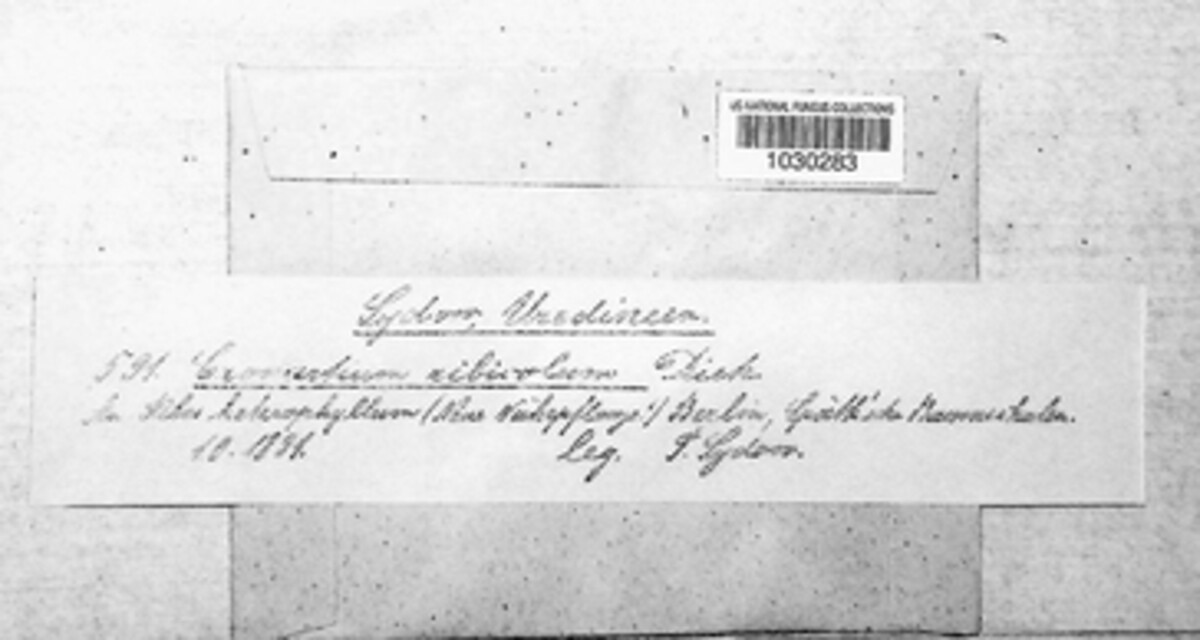 US NATIONAL FUNGUS COLLECTIONS
1030283
Sydow, Uredineen.
591. Cronartium ribicolum Diet.
heterophyllum (Neue Nährpflanze!) Berlin, Späth'sche Baumschulen.
10. 1891. leg. P. Sydow.